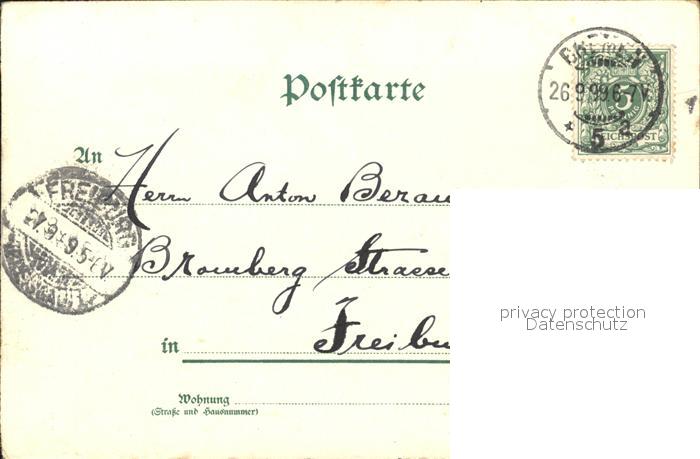 Postkarte
BREMEN
26.9.99.6-7V.
* 5 a *
5
REICHSPOST
An
Herrn Anton Berau
FREIBURG
27.9.99.5-6V.
Bromberg Strasse
in Freibu
privacy protection
Datenschutz
Wohnung
(Straße und Hausnummer)